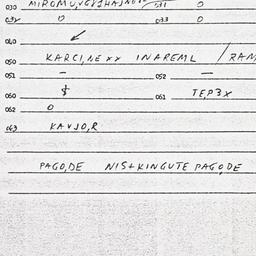 030 031 0
032 0 033 0
040
050 KARCI,NE xx INAREML /
051 - 052 -
050 $ 061 TEP3X
062 0
063 KAVJO,R
PAGO,DE NIS+KINGUTE PAGO,DE